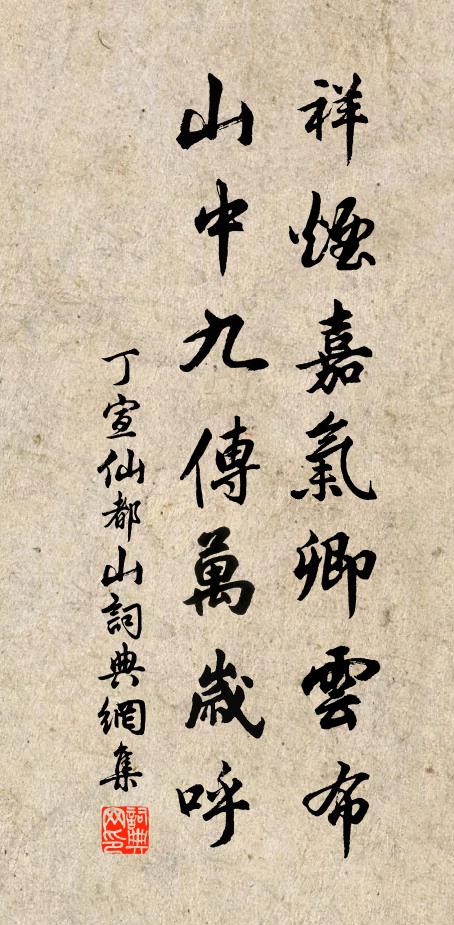 祥煙嘉氣卿雲布
山中九傳萬歲呼
丁宣仙都山詞典網集
詞典網印